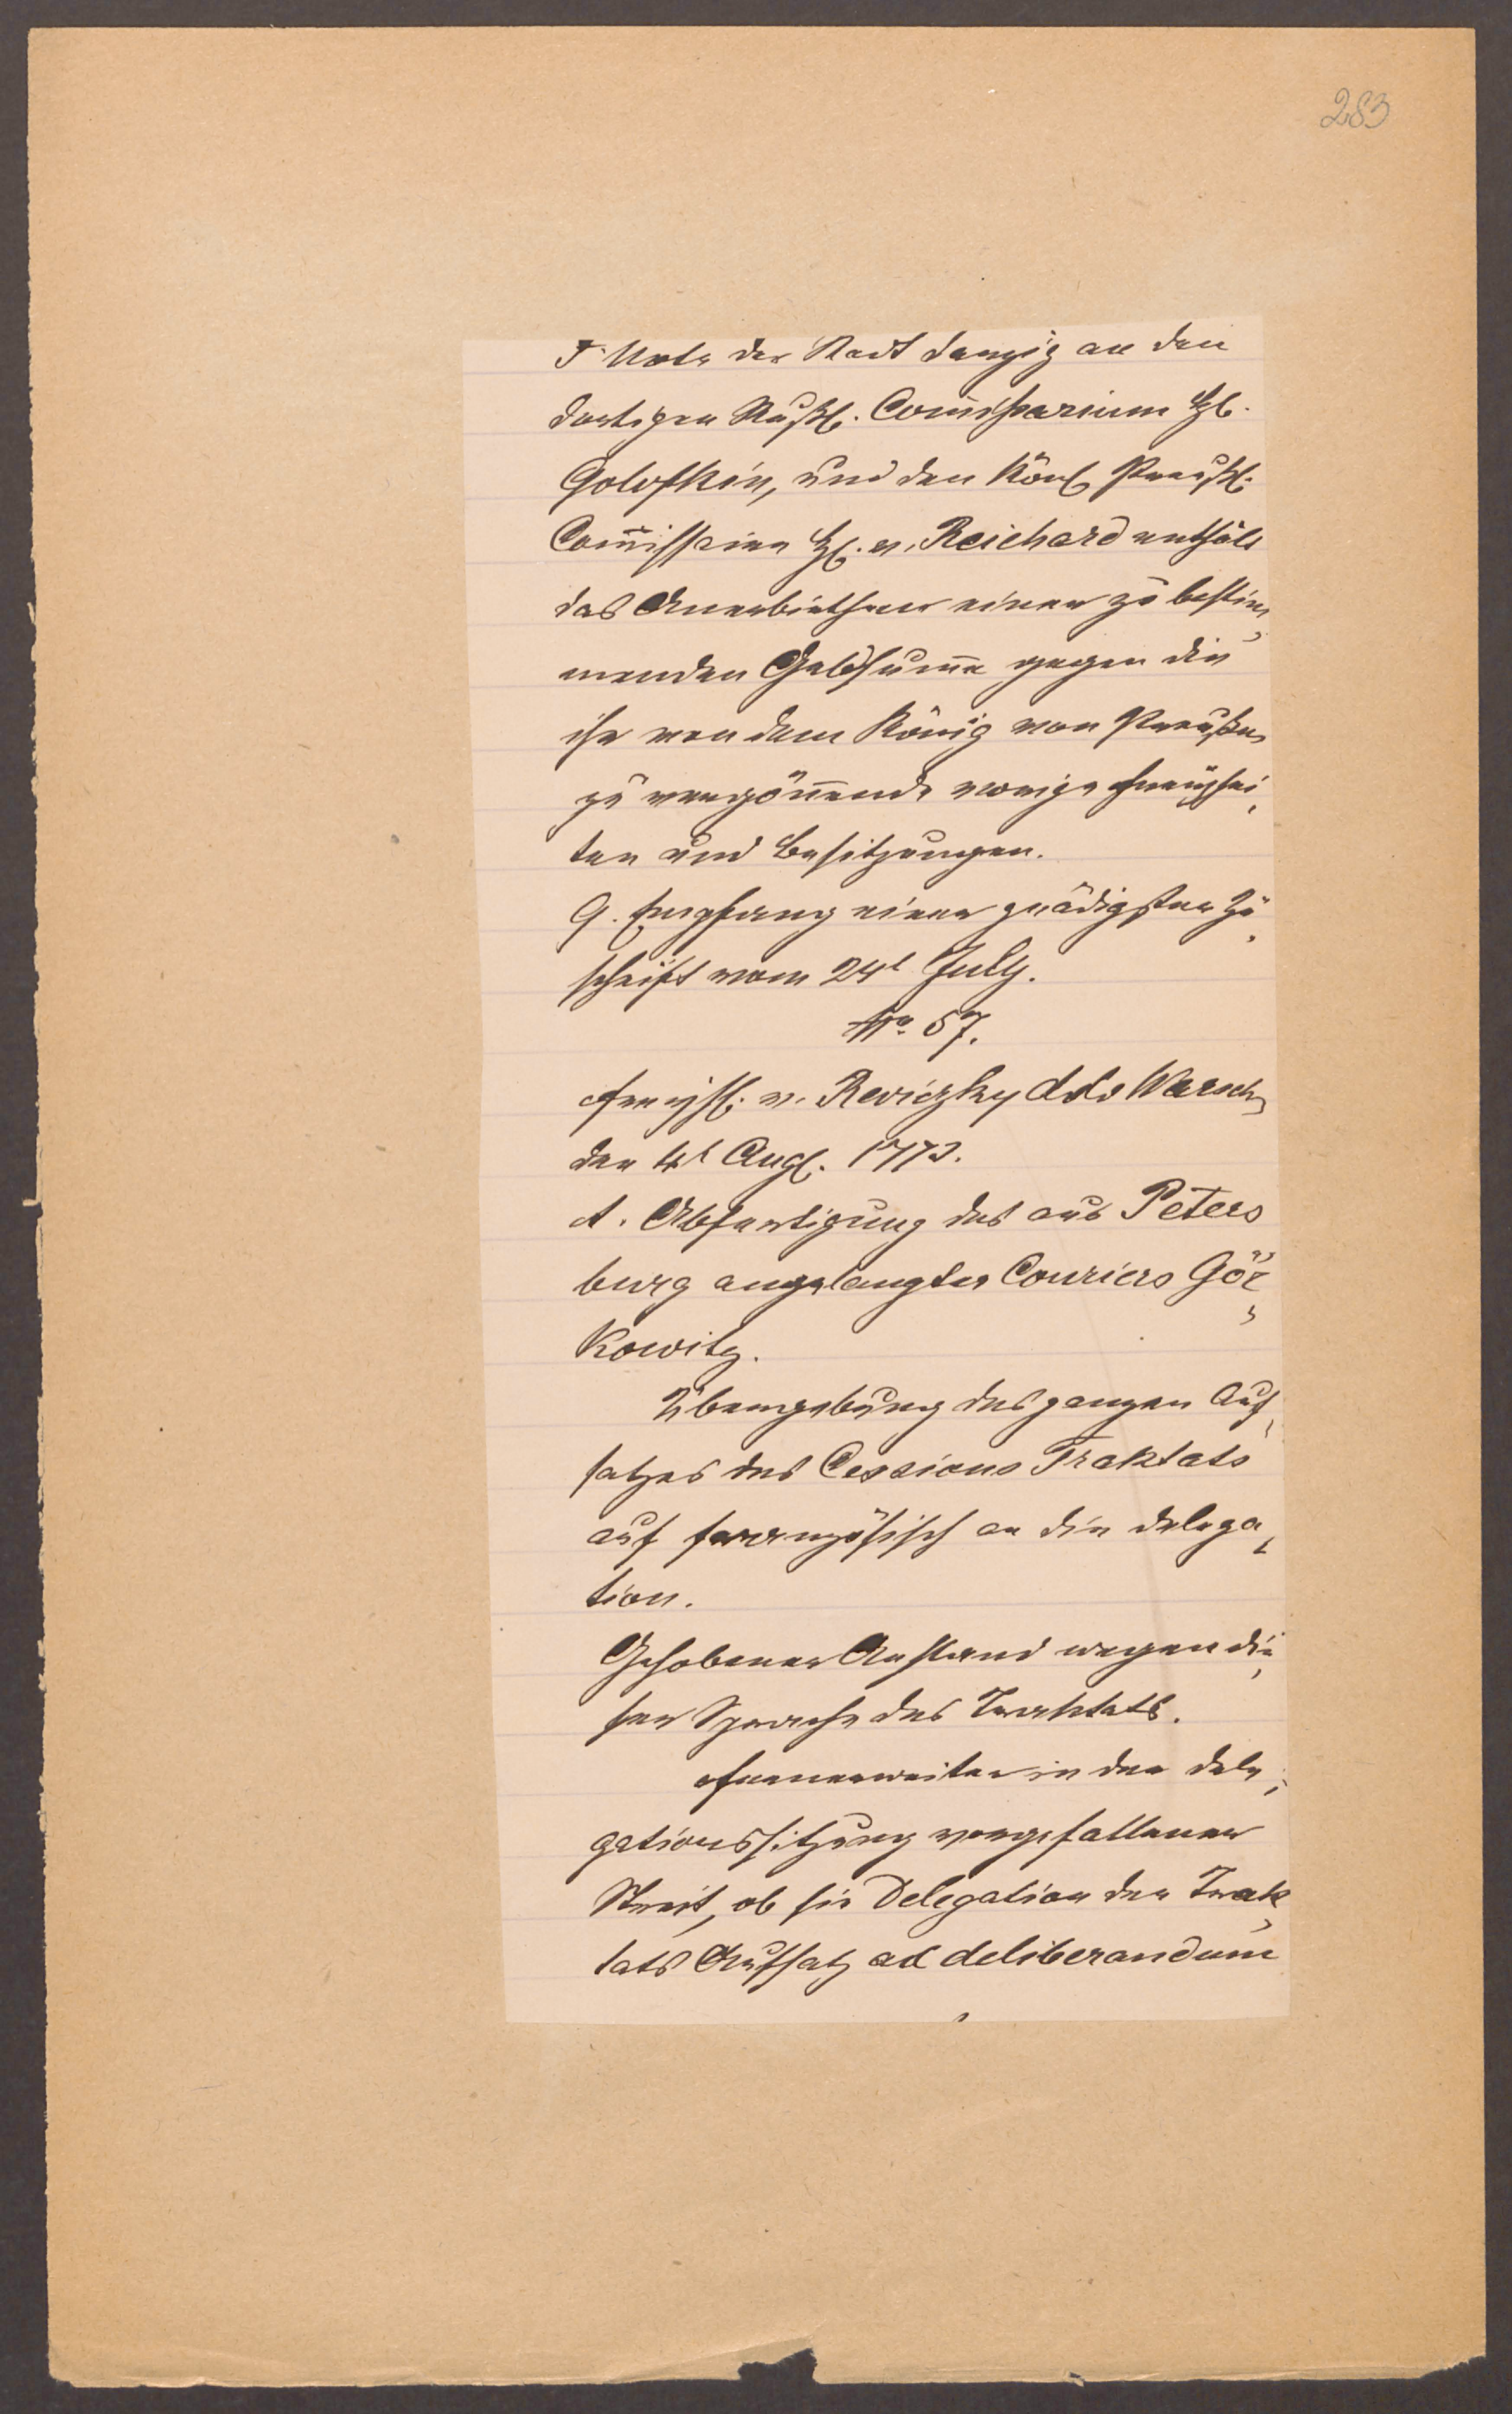 283
F Nota der Stadt Danzig an den
dortigen Rußl. Commissarium Hl.
Golofkin, und den Königl. Preußl.
Commissaire Hl. v. Reichard enthält
das Anerbiethen einer zu bestim„
menden Geldsumme gegen die
ihr von dem König von Preußen
zu vergönnende vorige Freyhei„
ten und Besitzungen.
G. Empfang einer gnädigsten Zu„
schrift vom 24t July.
No. 57.
Freyhl. v. Reviczky ddo Warsch„
den 4t Augl. 1773.
A. Abfertigung des aus Peters
burg angelangten Couriers Gör„
kowitz.
Übergebung des ganzen Auf„
satzes des Cessions Traktats
auf französisch an die Delega„
tion.
Gehobener Anstand wegen die„
ser Sprache des Traktats.
Fernerweiter in der Dele„
gationssitzung vorgefallener
Streit, ob die Delegation den Trak„
tats Aufsatz ad deliberandum